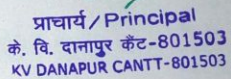 प्राचार्य / Principal
के. वि. दानापुर कैंट-801503
KV DANAPUR CANTT-801503